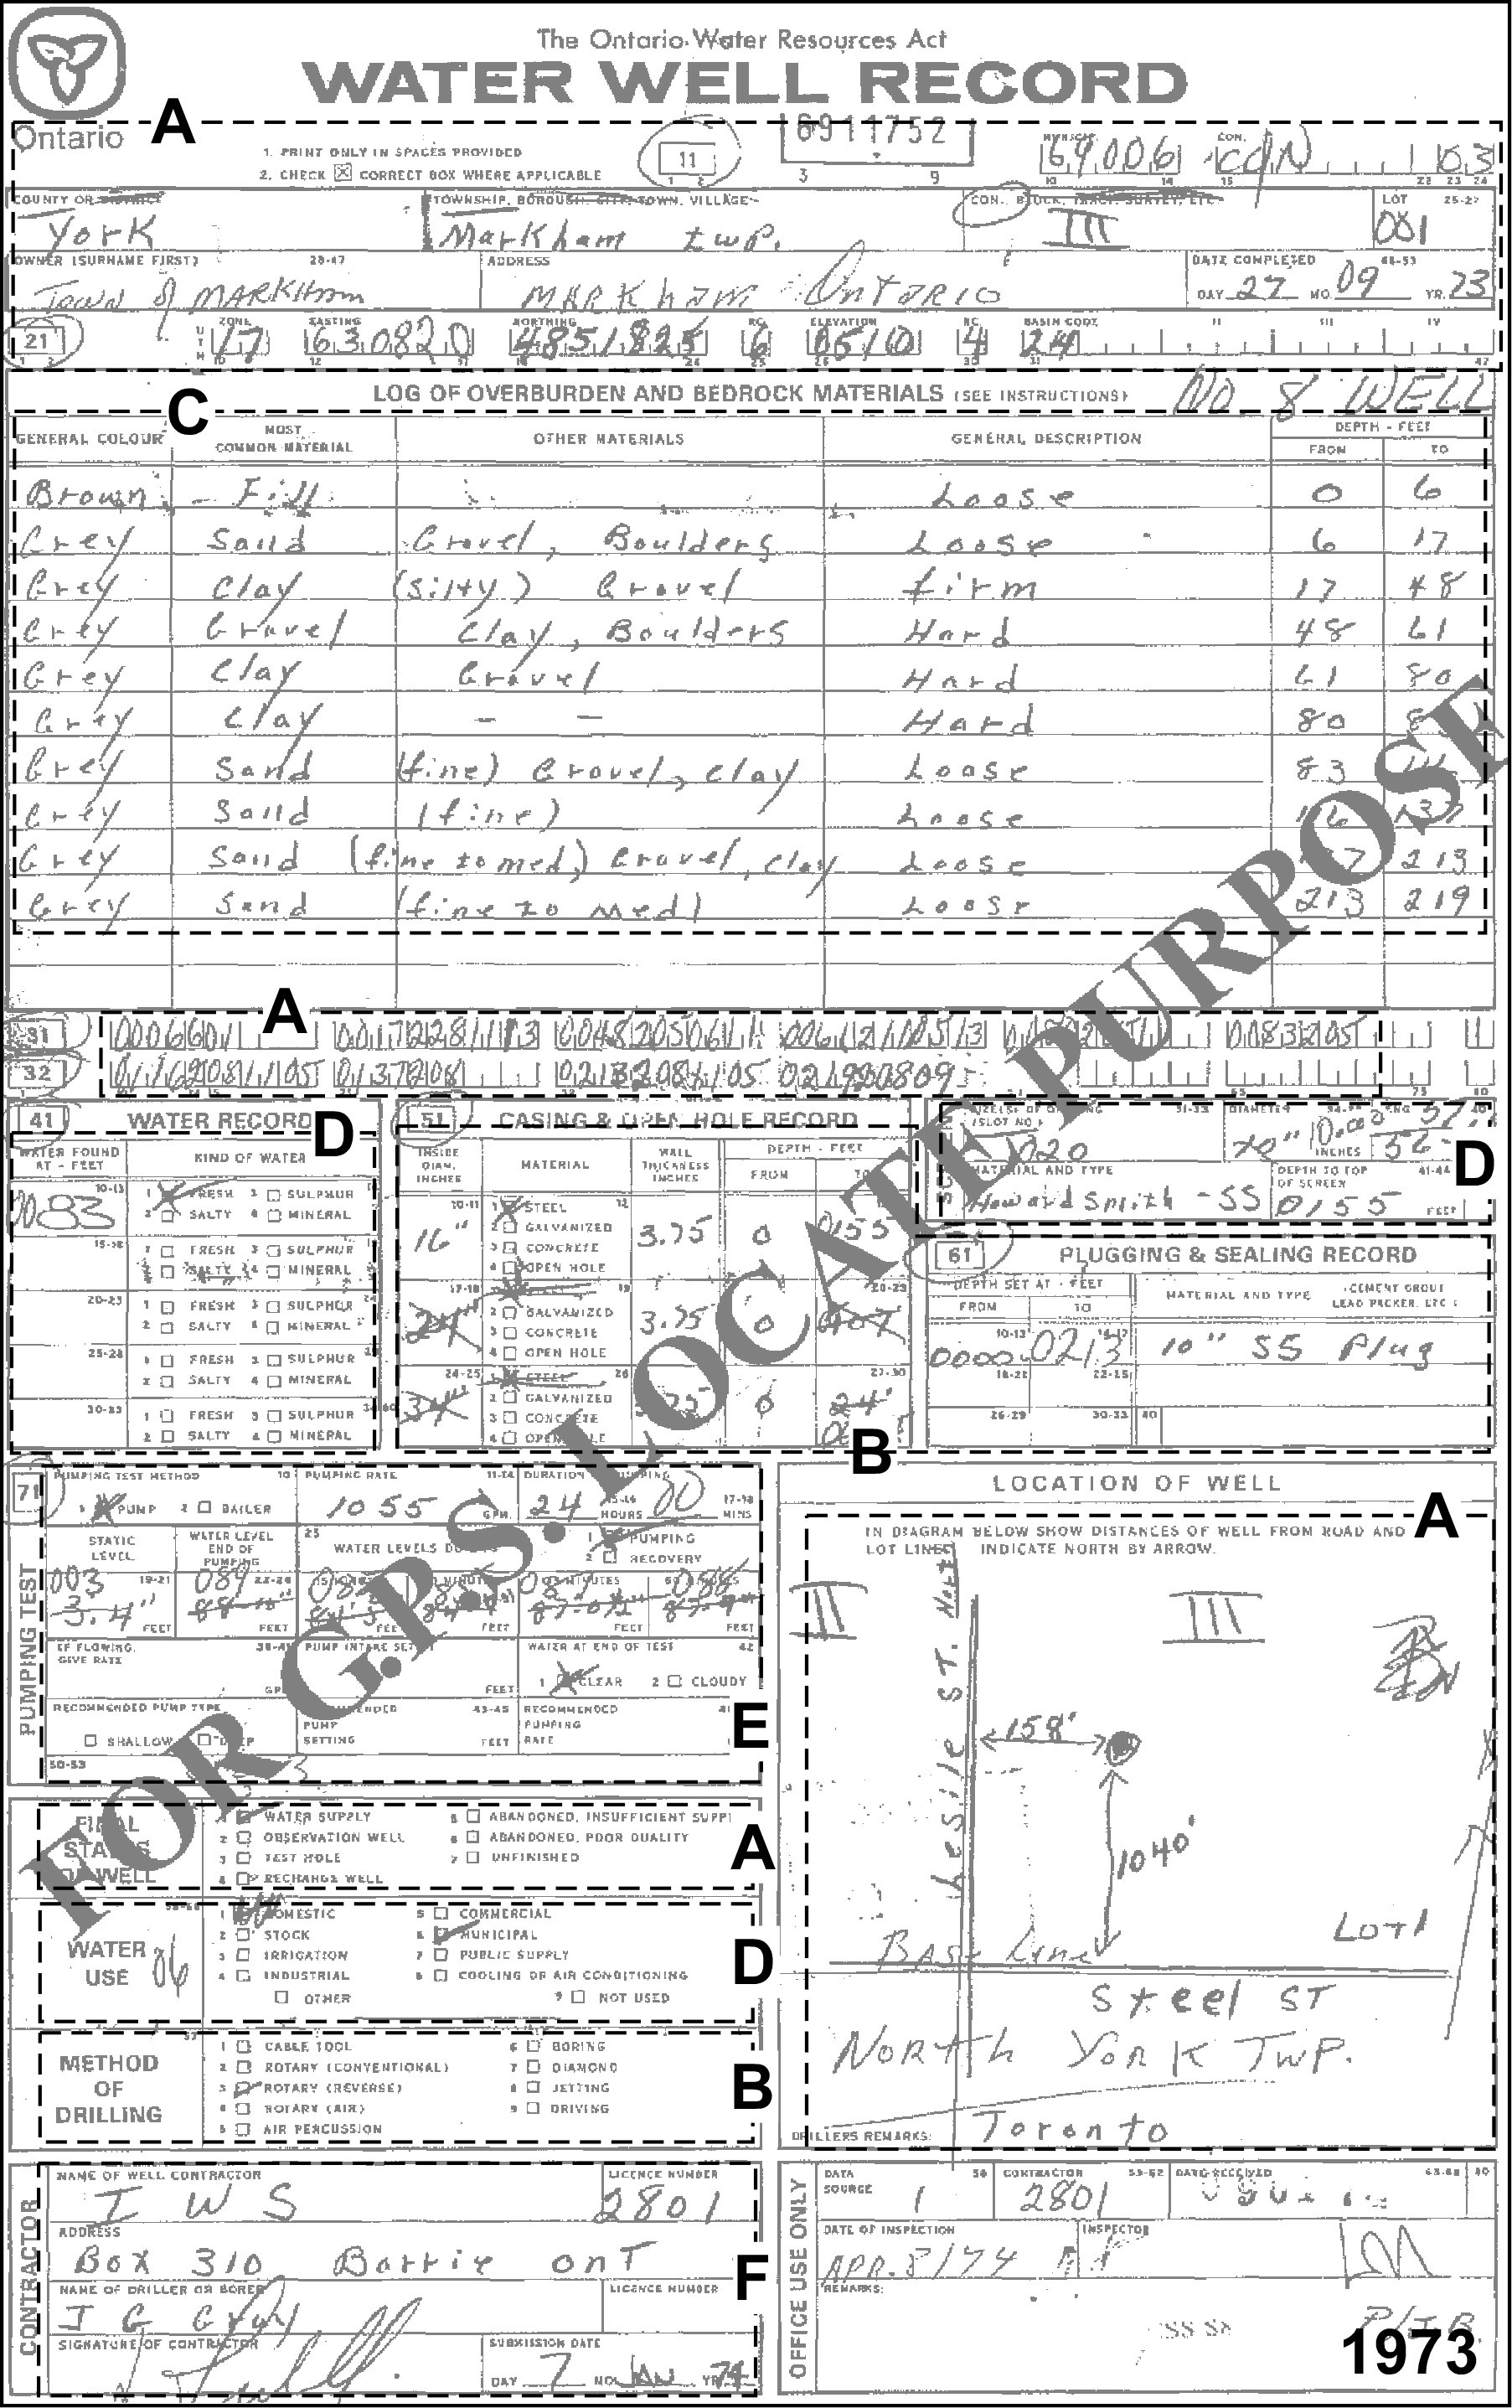 The Ontario Water Resources Act
WATER WELL RECORD
Ontario
A
1. PRINT ONLY IN SPACES PROVIDED
2. CHECK ☒ CORRECT BOX WHERE APPLICABLE
11
1 2
6911752
3 9
MUNICIP.
69006
10 14
CON.
CON
15
03
22 23 24
COUNTY OR DISTRICT
York
TOWNSHIP, BOROUGH, CITY, TOWN, VILLAGE
Markham twp.
CON., BLOCK, TRACT SURVEY, ETC
III
LOT 25-27
001
OWNER (SURNAME FIRST) 28-47
Town of MARKHAM
ADDRESS
MARKHAM Ontario
DATE COMPLETED 48-53
DAY 27 MO. 09 YR. 73
21
1 2
UTM
ZONE
17
EASTING
630820
NORTHING
4851825
RC
6
ELEVATION
0510
RC
4
BASIN CODE
24
II III IV
LOG OF OVERBURDEN AND BEDROCK MATERIALS (SEE INSTRUCTIONS)
NO. 8 WELL
C
GENERAL COLOUR MOST COMMON MATERIAL OTHER MATERIALS GENERAL DESCRIPTION DEPTH - FEET
FROM TO
Brown - Fill Loose 0 6
Grey Sand Gravel, Boulders Loose 6 17
Grey Clay (silty) Gravel firm 17 48
Grey Gravel Clay, Boulders Hard 48 61
Grey Clay Gravel Hard 61 80
Grey Clay - - Hard 80
Grey Sand (fine) Gravel, Clay Loose 83
Grey Sand (fine) Loose
Grey Sand (fine to med,) Gravel, Clay Loose 213
Grey Sand (fine to med) Loose 213 219
A
31
32
41 WATER RECORD D
WATER FOUND AT - FEET
KIND OF WATER
10-13
0083
1 FRESH 3 SULPHUR
2 SALTY 4 MINERAL
15-18
1 FRESH 3 SULPHUR
2 SALTY 4 MINERAL
20-23
1 FRESH 3 SULPHUR
2 SALTY 4 MINERAL
25-28
1 FRESH 3 SULPHUR
2 SALTY 4 MINERAL
30-33
1 FRESH 3 SULPHUR
2 SALTY 4 MINERAL
51 CASING & OPEN HOLE RECORD
INSIDE DIAM. INCHES
MATERIAL
WALL THICKNESS INCHES
DEPTH - FEET
FROM TO
10-11
16"
1 STEEL
2 GALVANIZED
3 CONCRETE
4 OPEN HOLE
3.75 0 0155
17-18
24
2 GALVANIZED
3 CONCRETE
4 OPEN HOLE
3.75 0
20-23
24-25
34"
1 STEEL
2 GALVANIZED
3 CONCRETE
27-30
0 24'
B
(SLOT NO.)
020
31-33
DIAMETER
INCHES
MATERIAL AND TYPE
Howard Smith - SS
DEPTH TO TOP OF SCREEN 41-44
0155 FEET
D
61 PLUGGING & SEALING RECORD
DEPTH SET AT - FEET
FROM TO
MATERIAL AND TYPE (CEMENT GROUT LEAD PACKER, ETC.)
10-13
0000 0213 10" SS Plug
18-21 22-25
26-29 30-33 80
71
PUMPING TEST
PUMPING TEST METHOD 10
1 PUMP 2 BAILER
PUMPING RATE 11-14
1055 GPM.
DURATION OF PUMPING
24 HOURS 00 MINS
17-18
STATIC LEVEL
WATER LEVEL END OF PUMPING
25
WATER LEVELS DURING
1 PUMPING
2 RECOVERY
003 19-21
089 22-24
087
088
3.4"
FEET FEET FEET FEET FEET
IF FLOWING, GIVE RATE 38-41
PUMP INTAKE SET
FEET
WATER AT END OF TEST 42
1 CLEAR 2 CLOUDY
RECOMMENDED PUMP TYPE
SHALLOW
PUMP SETTING 43-45 FEET
RECOMMENDED PUMPING RATE
50-53
E
FINAL STATUS OF WELL
WATER SUPPLY
2 OBSERVATION WELL
3 TEST HOLE
4 RECHARGE WELL
5 ABANDONED, INSUFFICIENT SUPPL
6 ABANDONED, POOR QUALITY
7 UNFINISHED
A
WATER USE 06
1 DOMESTIC
2 STOCK
3 IRRIGATION
4 INDUSTRIAL
OTHER
5 COMMERCIAL
6 MUNICIPAL
7 PUBLIC SUPPLY
8 COOLING OR AIR CONDITIONING
9 NOT USED
D
METHOD OF DRILLING
1 CABLE TOOL
2 ROTARY (CONVENTIONAL)
3 ROTARY (REVERSE)
4 ROTARY (AIR)
5 AIR PERCUSSION
6 BORING
7 DIAMOND
8 JETTING
9 DRIVING
B
LOCATION OF WELL
A
IN DIAGRAM BELOW SHOW DISTANCES OF WELL FROM ROAD AND
LOT LINE. INDICATE NORTH BY ARROW.
II III
Leslie ST.
158'
1040'
Lot 1
Base Line
Steel ST
North York Twp.
DRILLERS REMARKS:
Toronto
CONTRACTOR
NAME OF WELL CONTRACTOR
I W S
LICENCE NUMBER
2801
ADDRESS
Box 310 Barrie ont
NAME OF DRILLER OR BORER
LICENCE NUMBER
SIGNATURE OF CONTRACTOR
SUBMISSION DATE
DAY 7 MO. JAN YR. 74
F
OFFICE USE ONLY
DATA SOURCE 58
1
CONTRACTOR 59-62
2801
DATE RECEIVED 63-68 80
DATE OF INSPECTION
APR. 8/74
INSPECTOR
REMARKS:
1973
FOR G.P.S. LOCATE PURPOSE